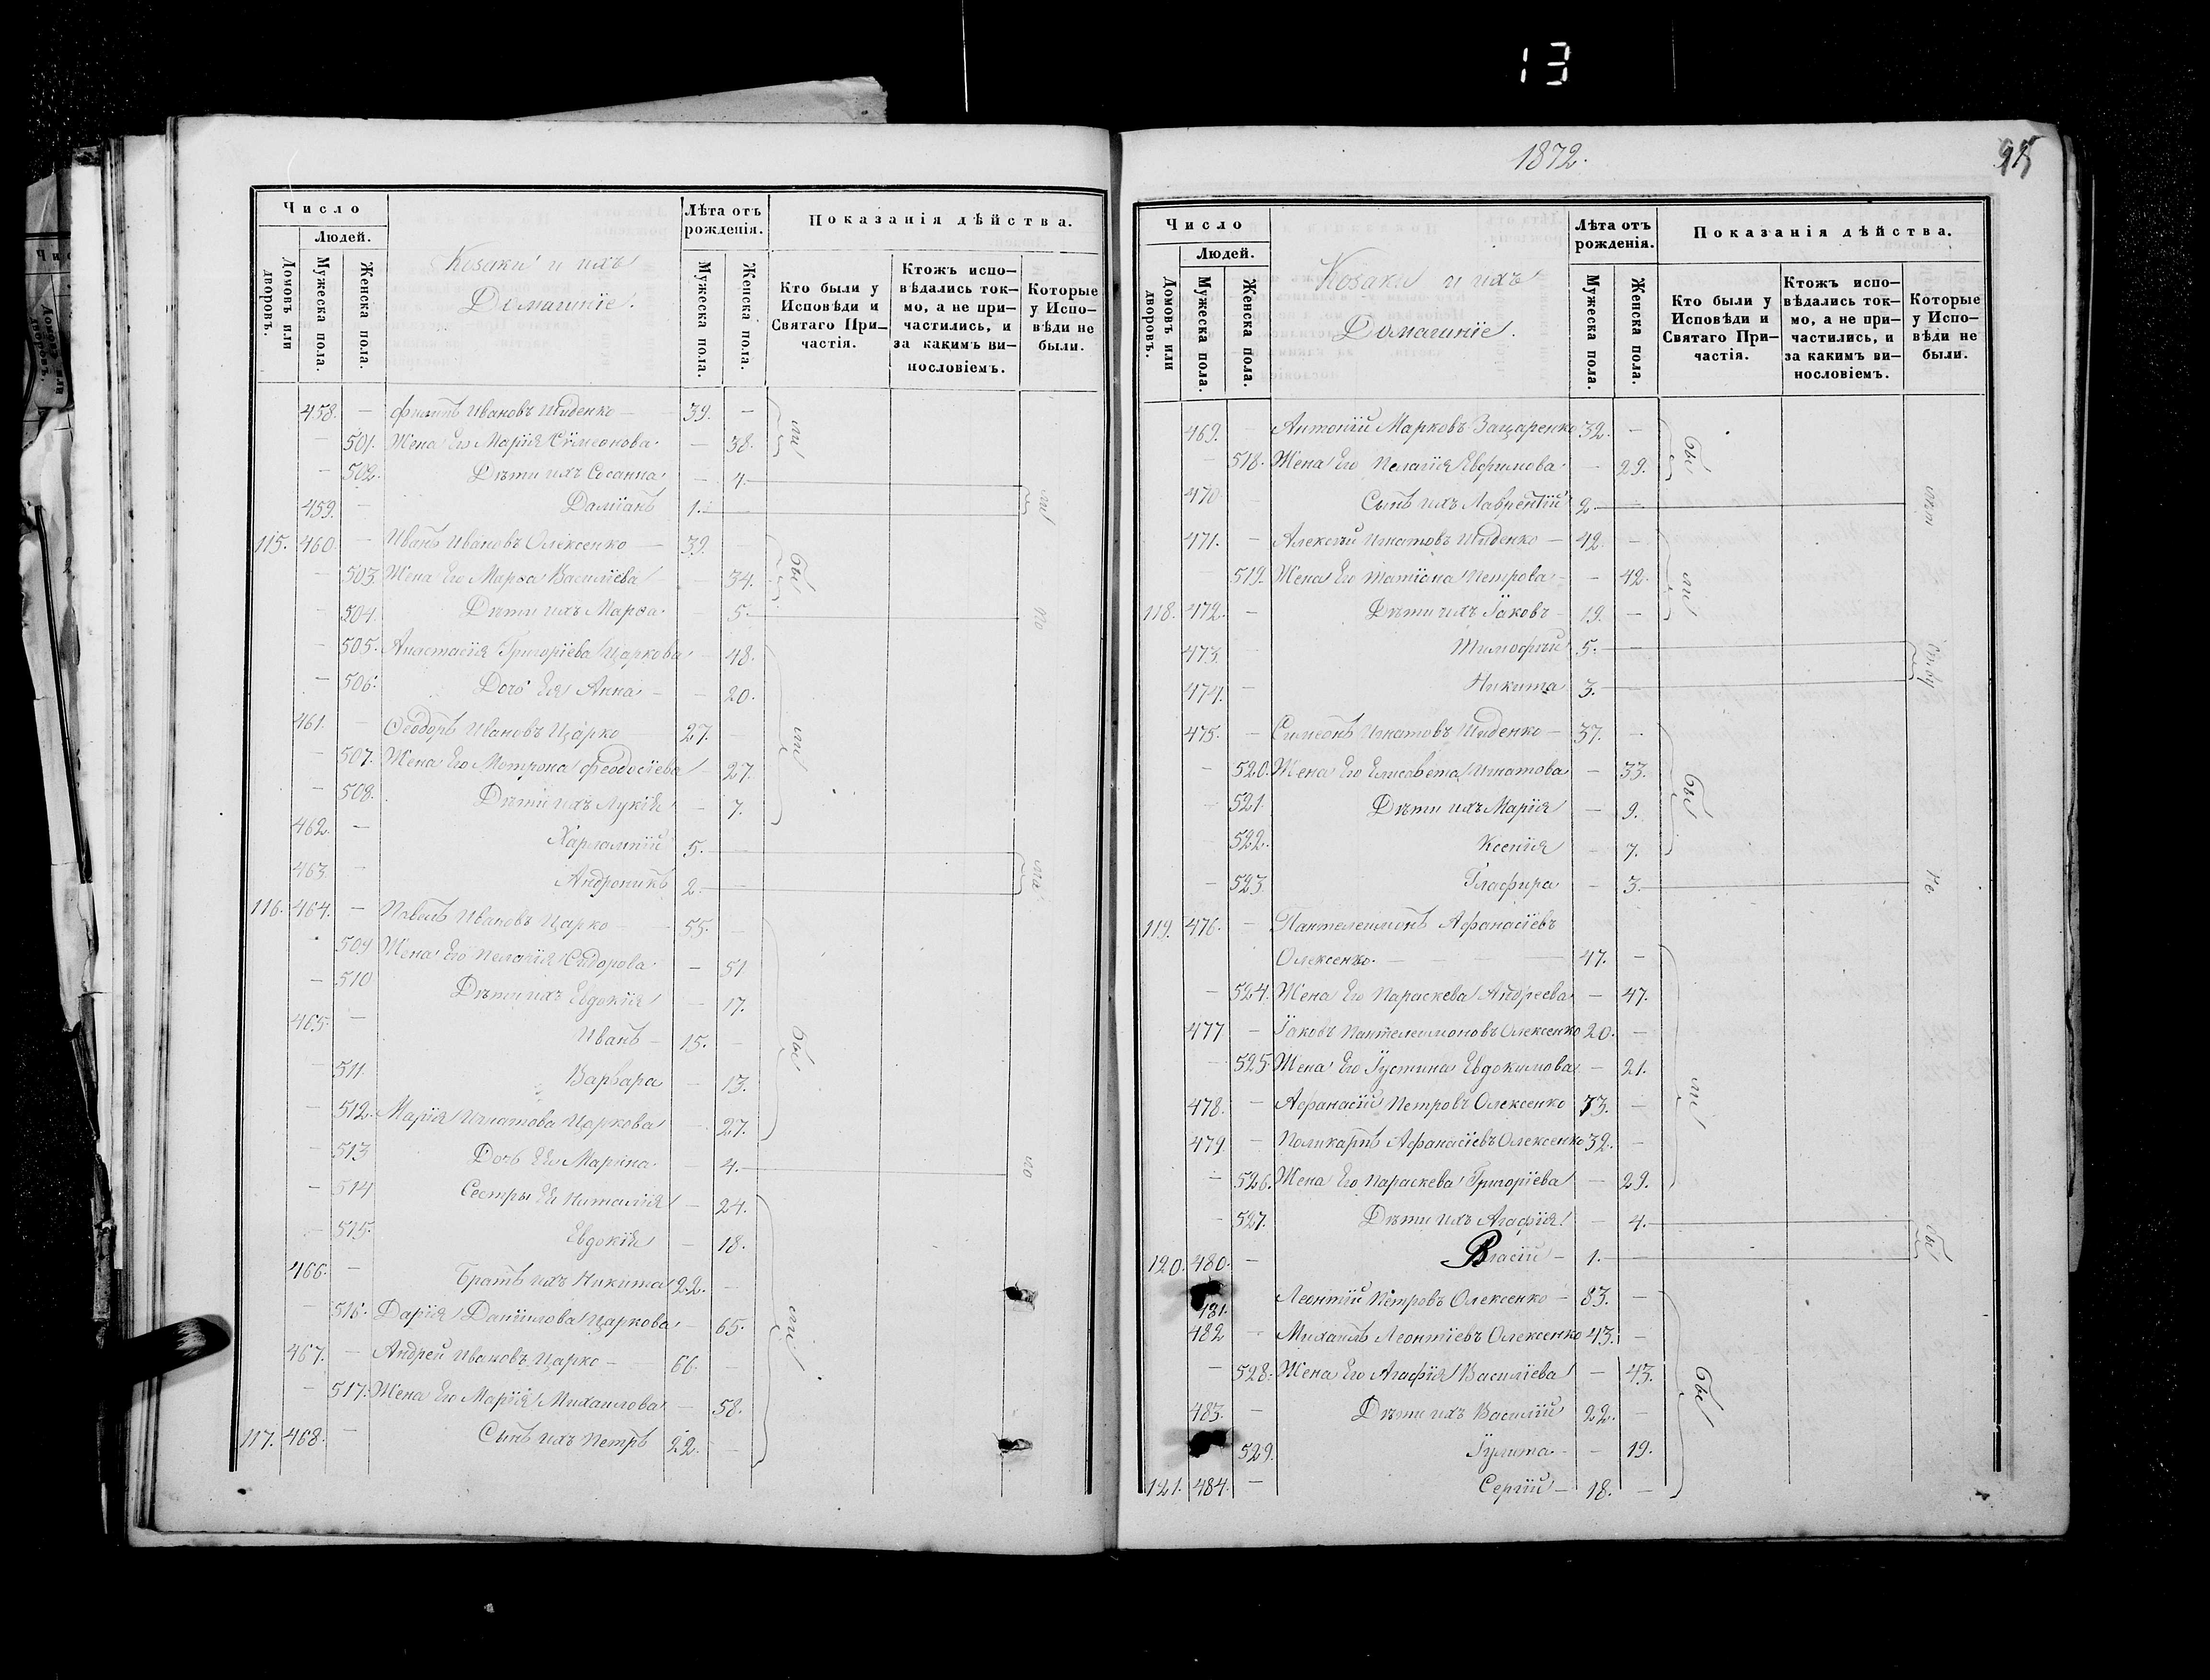 13
Число
Людей.
Домовъ или дворовъ.
Мужеска пола.
Женска пола.
Козаки и ихъ
Домашніе.
Лѣта отъ рожденія.
Мужеска пола.
Женска пола.
Показанія дѣйства.
Кто были у Исповѣди и Святаго При-частія.
Ктожъ испо-вѣдались ток-мо, а не при-частились, и за какимъ ви-нословіемъ.
Которые у Испо-вѣди не были.
458. — Филипъ Ивановъ Шиденко — 39. —
— 501. Жена Его Марія Симеонова — 38.
— 502. Дѣти ихъ Сосанна — 4.
459. — Даміанъ 1. —
115. 460. — Иванъ Ивановъ Олексенко — 39. —
— 503 Жена Его Марѳа Василіева — 34.
— 504. Дѣти ихъ Марѳа — 5.
— 505. Анастасія Григоріева Царкова 48.
— 506. Дочь Ея Анна — 20.
461. — Ѳеодоръ Ивановъ Царко 27. —
— 507. Жена Его Мотрона Феодосіева 27.
— 508. Дѣти ихъ Лукія — 7.
462. — Харлампій 5. —
463. — Андроникъ 2. —
116. 464. — Павелъ Ивановъ Царко 55. —
509 Жена Его Пелагія Сидорова — 51
— 510 Дѣти ихъ Евдокія — 17.
465. — Иванъ — 15. —
— 511. Варвара — 13.
— 512. Марія Игнатова Царкова — 27.
— 513 Дочь Ея Марина — 4.
— 514 Сестры Ея Наталія — 24.
— 515. Евдокія — 18.
466. — Братъ ихъ Никита 22. —
— 516. Дарія Даніилова Царкова — 65.
467. — Андрей Ивановъ Царко — 66. —
— 517. Жена Его Марія Михаилова — 58.
117. 468. — Сынъ ихъ Петръ 22. —
1872.
Число
Людей.
Домовъ или дворовъ.
Мужеска пола.
Женска пола.
Козаки и ихъ
Домашніе.
Лѣта отъ рожденія.
Мужеска пола.
Женска пола.
Показанія дѣйства.
Кто были у Исповѣди и Святаго При-частія.
Ктожъ испо-вѣдались ток-мо, а не при-частились, и за какимъ ви-нословіемъ.
Которые у Испо-вѣди не были.
469. — Антоній Марковъ Зацаренко 32. —
— 518. Жена Его Пелагія Евфимова — 29.
470 — Сынъ ихъ Лаврентій 2. —
471. — Алексѣй Игнатовъ Шиденко — 42. —
— 519. Жена Его Татіана Петрова — 42.
118. 472. — Дѣти ихъ Іаковъ — 19. —
473. — Тимофѣй 5. —
474. — Никита 3. —
475. — Симеонъ Игнатовъ Шиденко — 37. —
— 520. Жена Его Елисавета Игнатова — 33.
— 521. Дѣти ихъ Марія — 9.
522. Ксенія — 7.
— 523. Глафира — 3.
119. 476. — Пантелеимонъ Афанасіевъ
Олексенко — 47. —
— 524. Жена Его Параскева Андреева — 47.
477 — Іаковъ Пантелеимоновъ Олексенко 20. —
— 525. Жена Его Іустина Евдокимова — 21.
478. — Афанасій Петровъ Олексенко 73. —
479. — Поликарпъ Афанасіевъ Олексенко 32. —
— 526. Жена Его Параскева Григоріева — 29.
— 527. Дѣти ихъ Агафія — 4.
120. 480. — Власій — 1. —
481. Леонтій Петровъ Олексенко — 83. —
482 — Михаилъ Леонтіевъ Олексенко 43. —
— 528. Жена Его Агафія Василіева — 43.
483. — Дѣти ихъ Василій 22. —
529. Іулита — 19.
121. 484. — Сергій — 18. —